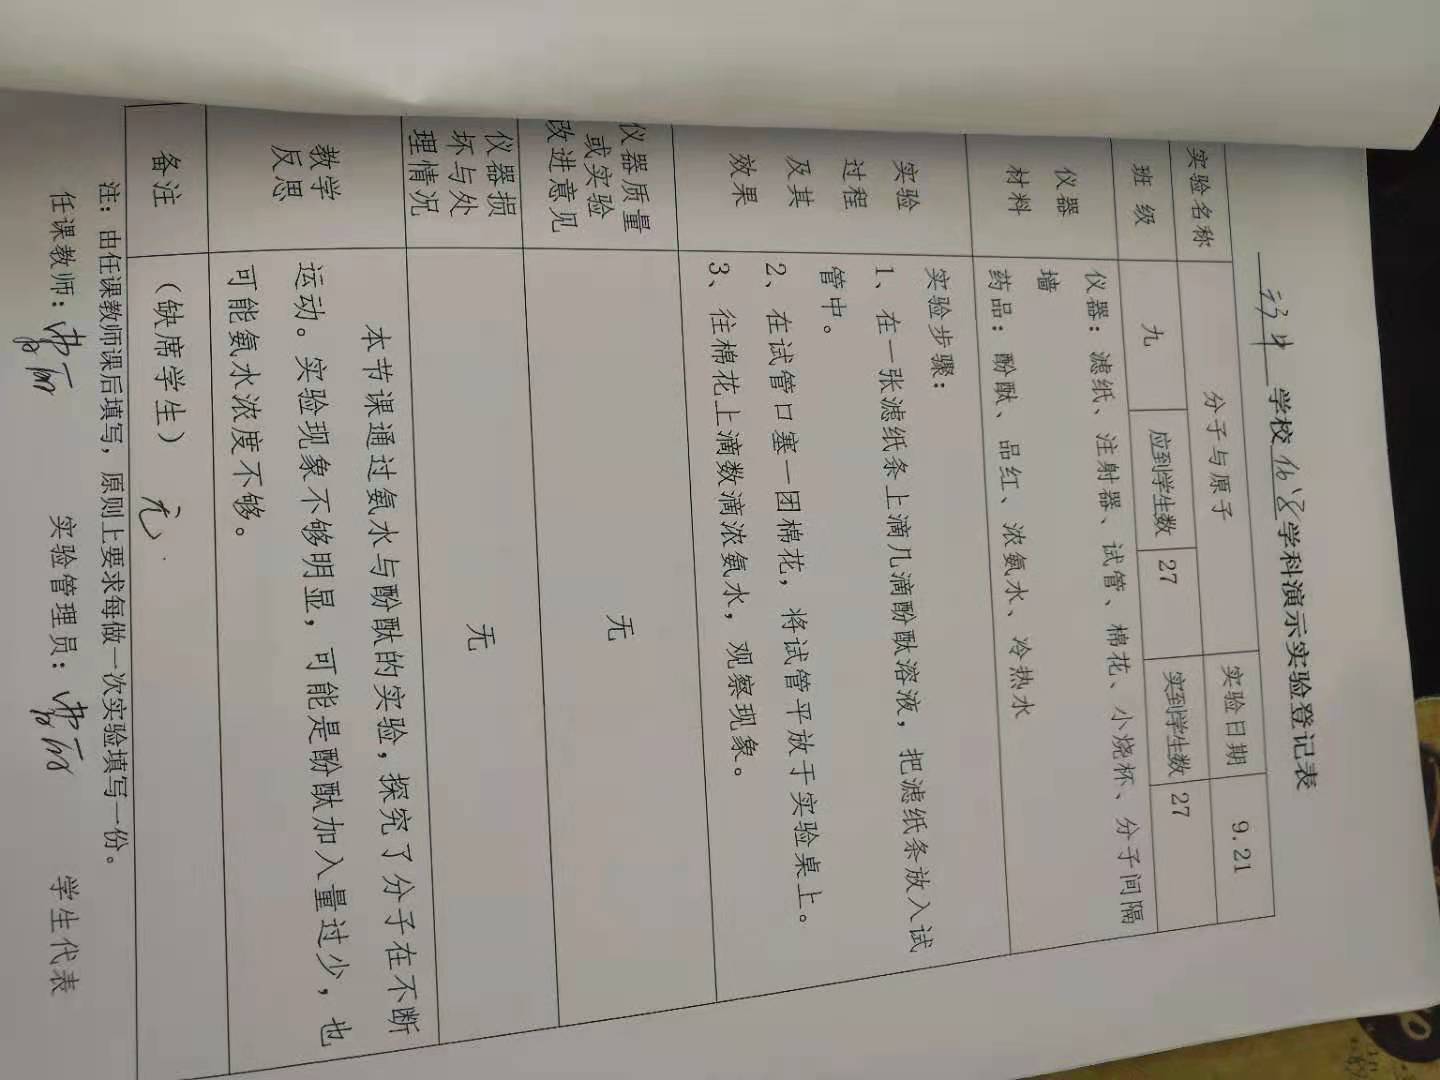 学校化学学科演示实验登记表
实验名称 分子与原子 实验日期 9.21
班 级 九 应到学生数 27 实到学生数 27
仪器
材料
仪器：滤纸、注射器、试管、棉花、小烧杯、分子间隔
墙
药品：酚酞、品红、浓氨水、冷热水
实验
过程
及其
效果
实验步骤：
1、在一张滤纸条上滴几滴酚酞溶液，把滤纸条放入试
管中。
2、在试管口塞一团棉花，将试管平放于实验桌上。
3、往棉花上滴数滴浓氨水，观察现象。
仪器质量
或实验
改进意见
无
仪器损
坏与处
理情况
无
教学
反思
本节课通过氨水与酚酞的实验，探究了分子在不断
运动。实验现象不够明显，可能是酚酞加入量过少，也
可能氨水浓度不够。
备注 （缺席学生） 无
注：由任课教师课后填写，原则上要求每做一次实验填写一份。
任课教师： 实验管理员： 学生代表